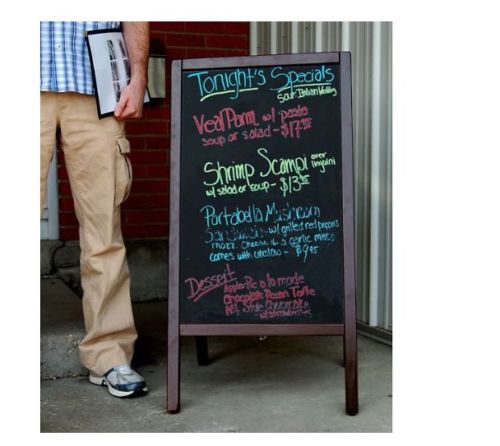 Tonight's Specials
Soup: Italian Wedding
Veal Parm w/ pasta
soup or salad - $17.95
Shrimp Scampi over
linguini
w/ salad or soup - $13.95
Portabella Mushroom
Sandwich - w/ grilled red peppers
mozz. cheese & garlic mayo
comes with coleslaw - $9.95
Dessert
Apple Pie a la mode
Chocolate Pecan Torte
N.Y. Style Cheesecake
w/ strawberries